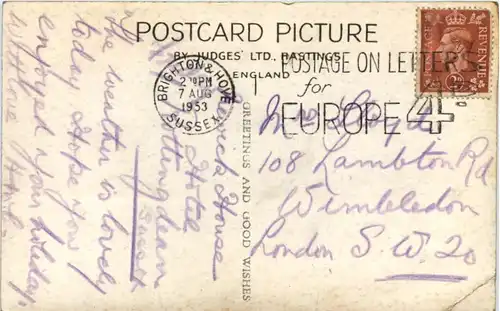 POSTCARD PICTURE
BY JUDGES' LTD., HASTINGS,
ENGLAND
BRIGHTON & HOVE
PM
7 AUG
1953
SUSSEX
POSTAGE ON LETTERS
for
EUROPE 4D.
POSTAGE REVENUE
GREETINGS AND GOOD WISHES
House
Hotel
Rottingdean
Sussex
The weather is lovely
today. Hope you
enjoyed your holiday.
Mrs
108 Lambton Rd
Wimbledon
London S.W. 20